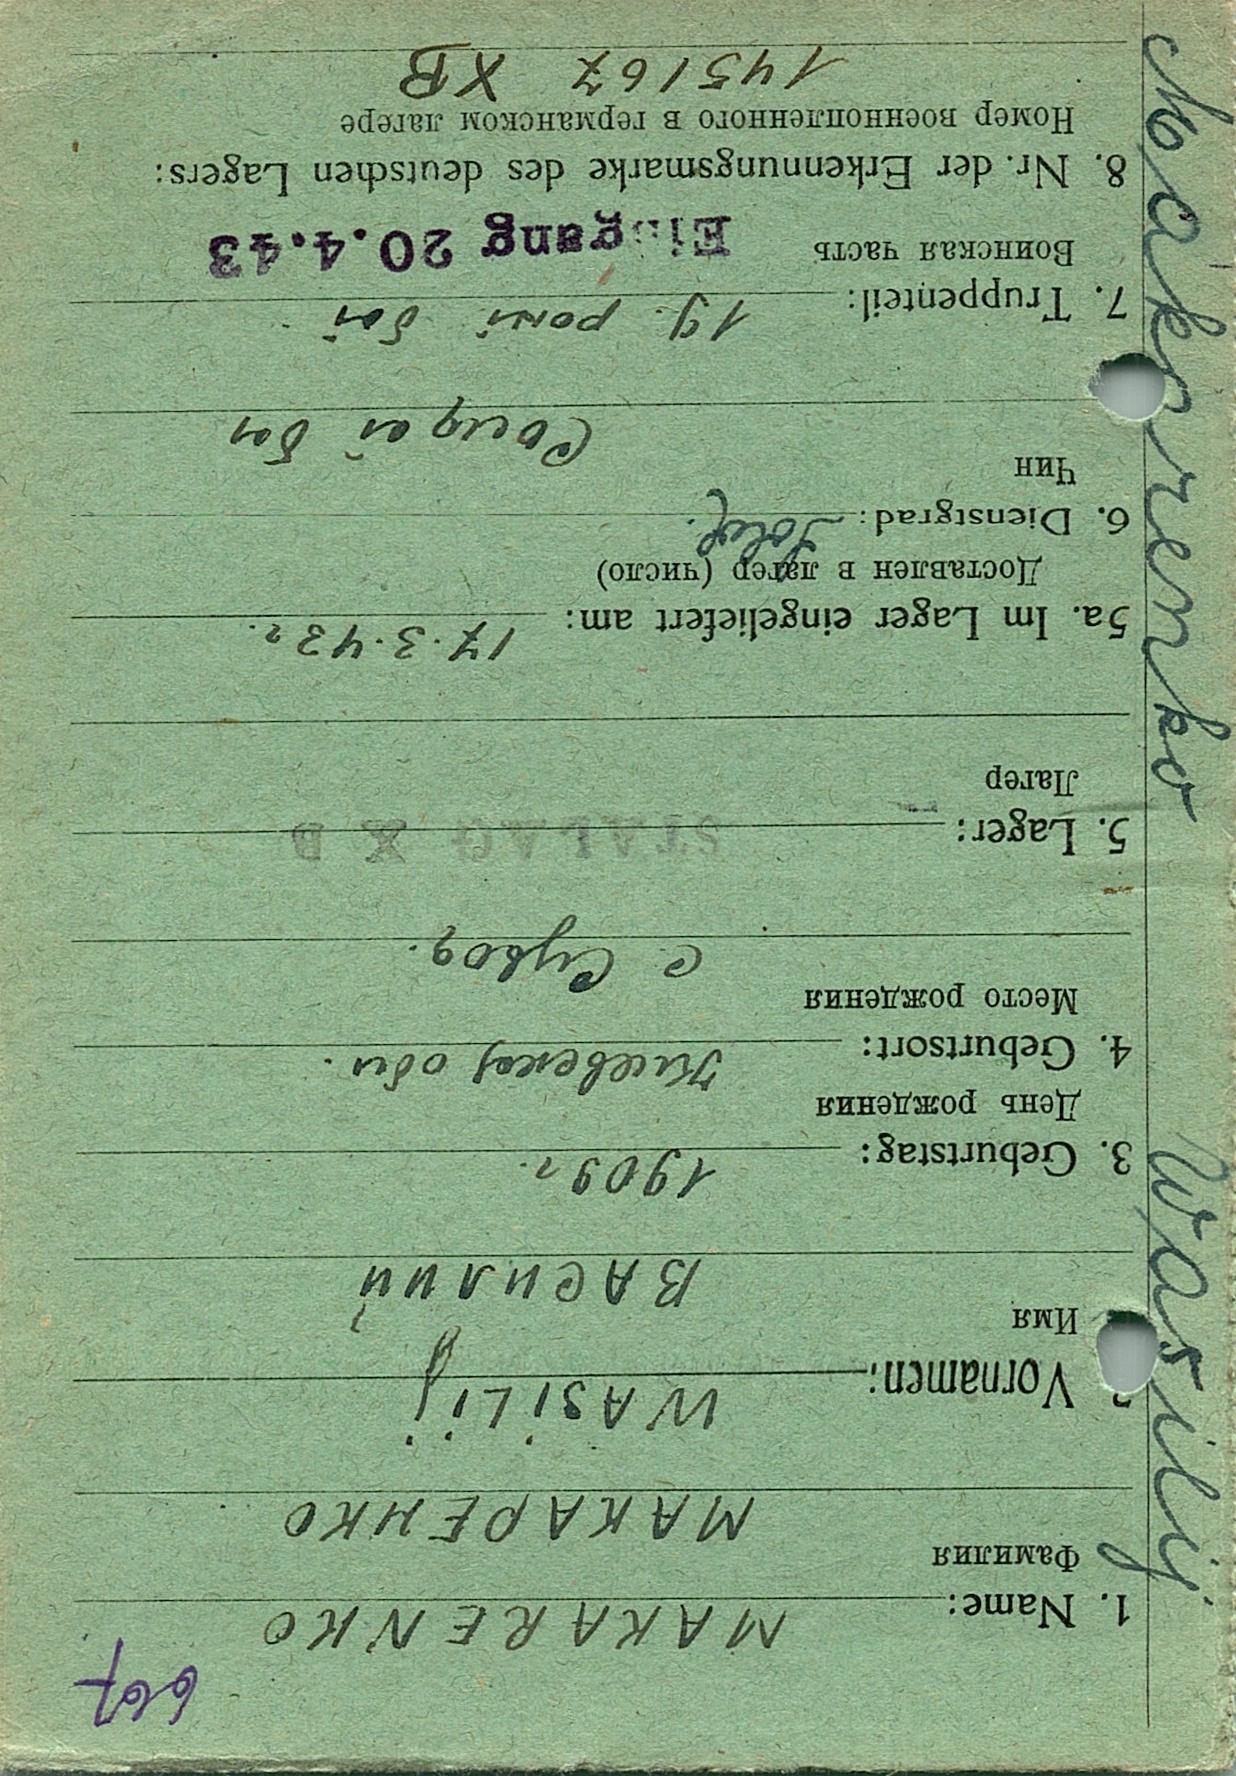 667
1. Name: MAKARENKO
Фамилия
МАКАРЕНКО
2. Vornamen: WASILIJ
Имя
ВАСИЛИЙ
3. Geburtstag: 1909 г.
День рождения
4. Geburtsort: Киевская обл.
Место рождения
с.
5. Lager: STALAG X B
Лагер
5a. Im Lager eingeliefert am: 17.3.43 г.
Доставлен в лагер (число)
6. Dienstgrad: Sold.
Чин
7. Truppenteil: 19
Воинская часть
Eingang 20.4.43
8. Nr. der Erkennungsmarke des deutschen Lagers:
Номер военнопленного в германском лагере
145167 XB
Makarenko Wasilij